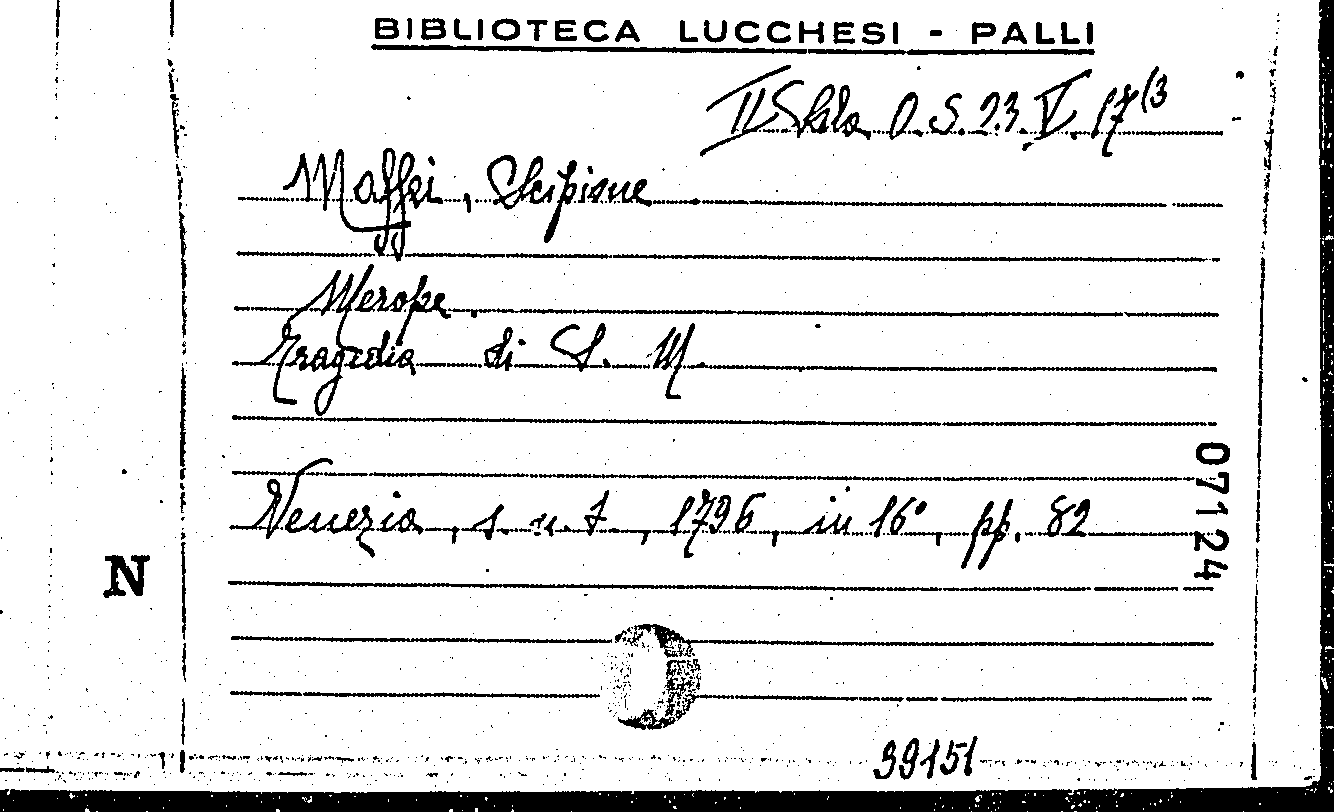 BIBLIOTECA LUCCHESI - PALLI
II Sala O. S. 23. V. 17(3
Maffei, Scipione
Merope.
Tragedia di S. M.
Venezia, s. n. t., 1796, in 16°, pp. 82
07124
N
39151